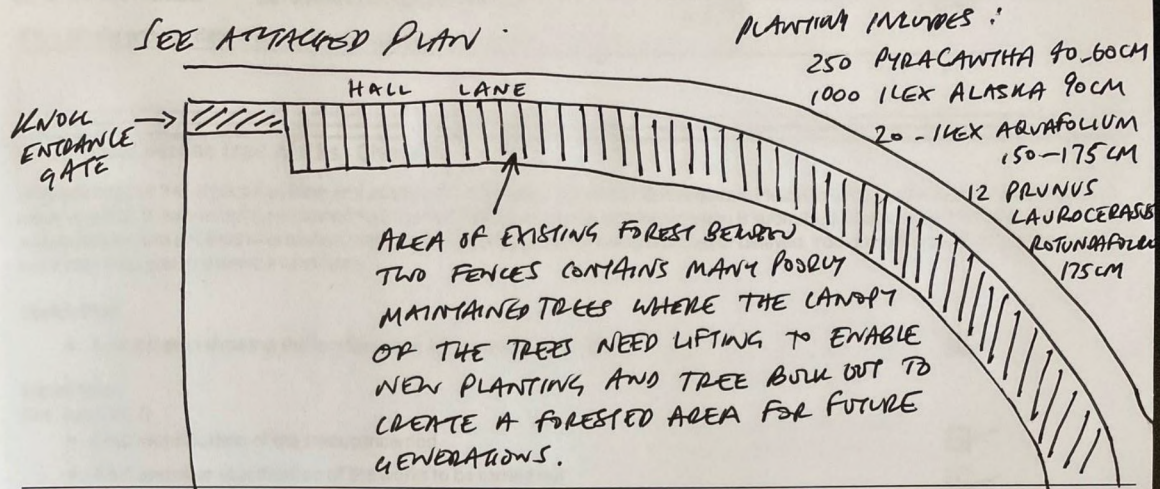 SEE ATTACHED PLAN.
PLANTING INCLUDES:
250 PYRACANTHA 40-60CM
1000 ILEX ALASKA 90CM
20-ILEX AQUAFOLIUM
150-175CM
12 PRUNUS
LAUROCERASUS
ROTUNDAFOLIA
175CM
HALL LANE
KNOLL
ENTRANCE
GATE
AREA OF EXISTING FOREST BETWEEN
TWO FENCES CONTAINS MANY POORLY
MAINTAINED TREES WHERE THE CANOPY
OF THE TREES NEED LIFTING TO ENABLE
NEW PLANTING AND TREE BULK OUT TO
CREATE A FORESTED AREA FOR FUTURE
GENERATIONS.